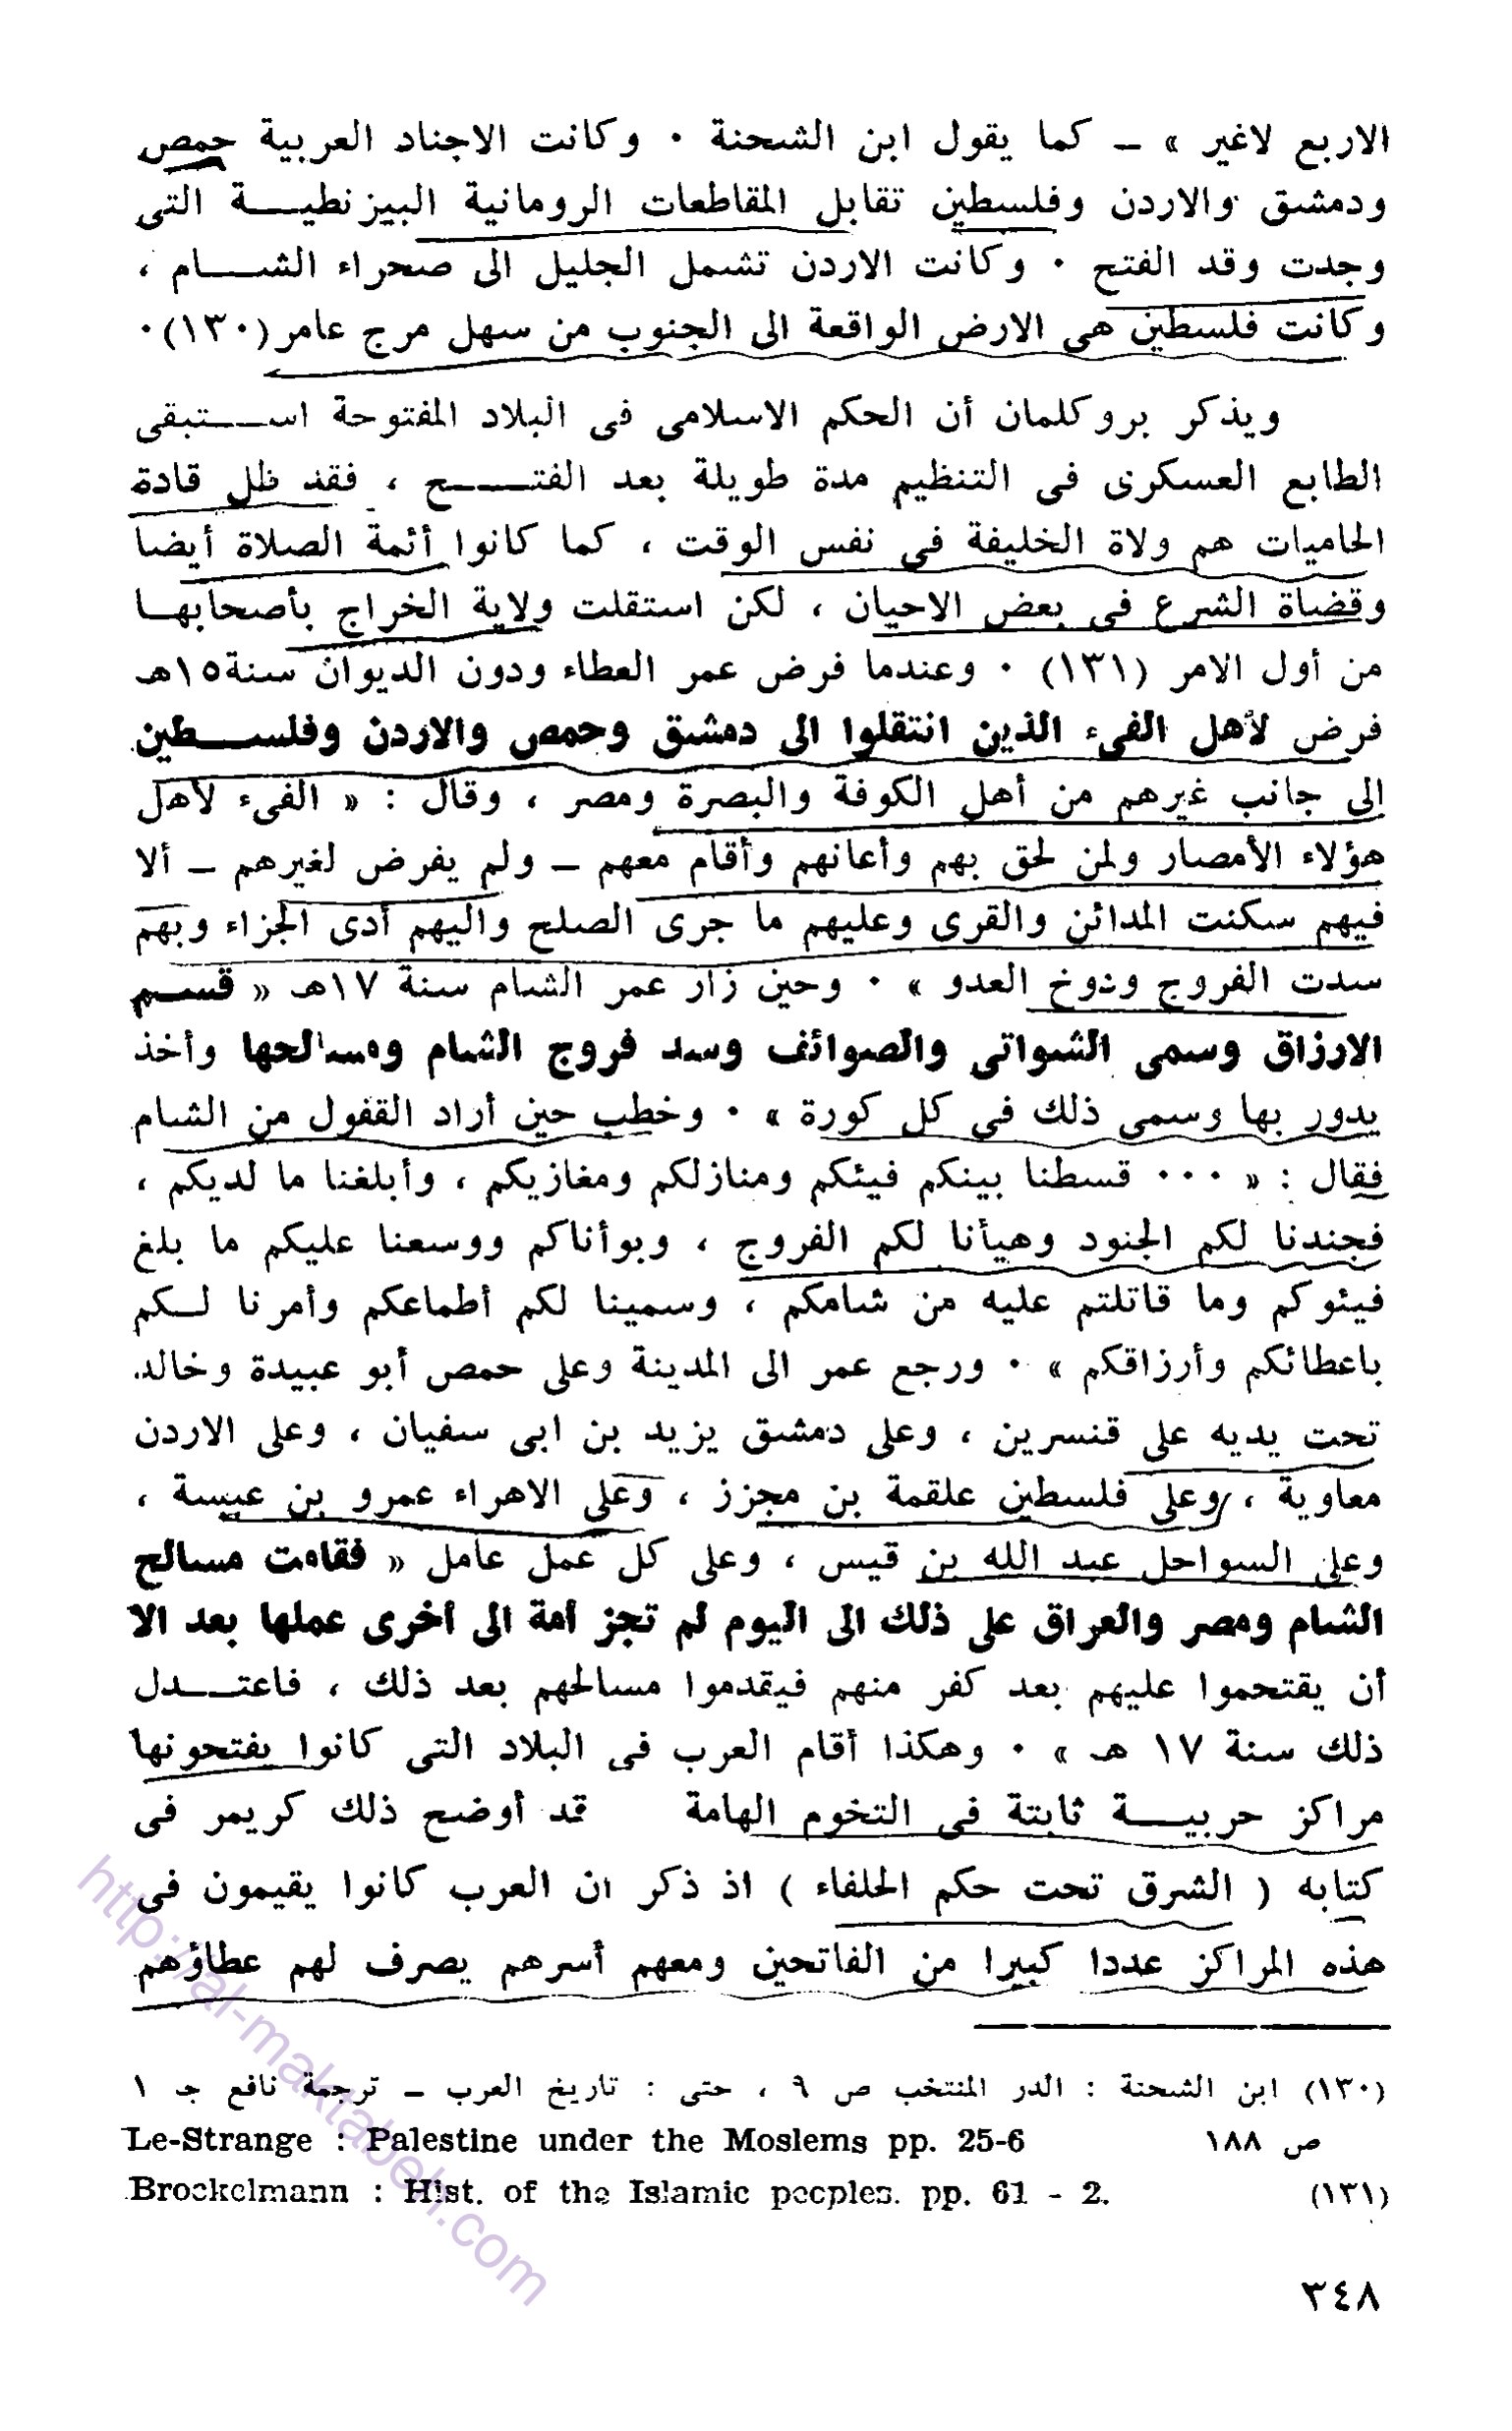 الاربع لاغير » ــ كما يقول ابن الشحنة ٠ وكانت الاجناد العربية حمص
ودمشق والاردن وفلسطين تقابل المقاطعات الرومانية البيزنطيـــة التى
وجدت وقد الفتح ٠ وكانت الاردن تشمل الجليل الى صحراء الشـــام ،
وكانت فلسطين هى الارض الواقعة الى الجنوب من سهل مرج عامر(١٣٠)٠
ويذكر بروكلمان أن الحكم الاسلامى فى البلاد المفتوحة اســـتبقى
الطابع العسكرى فى التنظيم مدة طويلة بعد الفتـــــح ، فقد ظل قادة
الحاميات هم ولاة الخليفة فى نفس الوقت ، كما كانوا أئمة الصلاة أيضا
وقضاة الشرع فى بعض الاحيان ، لكن استقلت ولاية الخراج بأصحابهــا
من أول الامر (١٣١) ٠ وعندما فرض عمر العطاء ودون الديوان سنة١٥هـ
فرض لأهل الفىء الذين انتقلوا الى دمشق وحمص والاردن وفلســـطين
إلى جانب غيرهم من أهل الكوفة والبصرة ومصر ، وقال : « الفىء لأهل
هؤلاء الأمصار ولمن لحق بهم وأعانهم وأقام معهم ــ ولم يفرض لغيرهم ــ ألا
فيهم سكنت المدائن والقرى وعليهم ما جرى الصلح واليهم أدى الجزاء وبهم
سدت الفروج ودوخ العدو » ٠ وحين زار عمر الشام سنة ١٧هـ « قســم
الارزاق وسمى الشواتى والصوائف وسد فروج الشام ومسالحها وأخذ
يدور بها وسمى ذلك فى كل كورة » ٠ وخطب حين أراد القفول من الشام
فقال : « ٠٠٠ قسطنا بينكم فيئكم ومنازلكم ومغازيكم ، وأبلغنا ما لديكم ،
فجندنا لكم الجنود وهيأنا لكم الفروج ، وبوأناكم ووسعنا عليكم ما بلغ
فيئوكم وما قاتلتم عليه من شامكم ، وسمينا لكم أطماعكم وأمرنا لــكم
باعطائكم وأرزاقكم » ٠ ورجع عمر الى المدينة وعلى حمص أبو عبيدة وخالد
تحت يديه على قنسرين ، وعلى دمشق يزيد بن ابى سفيان ، وعلى الاردن
معاوية ، وعلى فلسطين علقمة بن مجزز ، وعلى الاهراء عمرو بن عبسة ،
وعلى السواحل عبد الله بن قيس ، وعلى كل عمل عامل « فقامت مسالح
الشام ومصر والعراق على ذلك الى اليوم لم تجز أمة الى أخرى عملها بعد الا
أن يقتحموا عليهم بعد كفر منهم فيقدموا مسالحهم بعد ذلك ، فاعتـــدل
ذلك سنة ١٧ هـ » ٠ وهكذا أقام العرب فى البلاد التى كانوا يفتحونها
مراكز حربيـــة ثابتة فى التخوم الهامة قد أوضح ذلك كريمر فى
كتابه ( الشرق تحت حكم الخلفاء ) اذ ذكر ان العرب كانوا يقيمون فى
هذه المراكز عددا كبيرا من الفاتحين ومعهم أسرهم يصرف لهم عطاؤهم
(١٣٠) ابن الشحنة : الدر المنتخب ص ٩ ، حتى : تاريخ العرب ــ ترجمة نافع جـ ١
ص ١٨٨ Le-Strange : Palestine under the Moslems pp. 25-6
(١٣١) Brockelmann : Hist. of the Islamic peoples. pp. 61 - 2.
٣٤٨
http://al-maktabeh.com